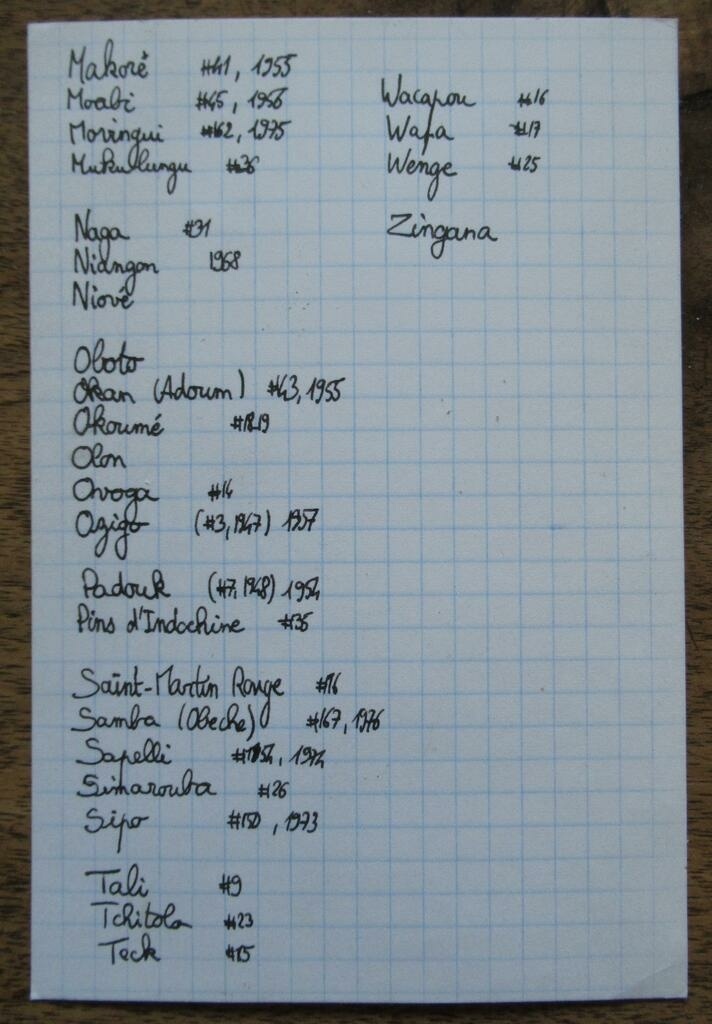 Makoré #41, 1955
Moabi #45, 1956
Movingui #162, 1975
Mukulungu #36
Naga #31
Niangon 1968
Niové
Oboto
Okan (Adoum) #43, 1955
Okoumé #18-19
Olon
Ovoga #14
Ozigo (#3, 1947) 1957
Padouk (#7, 1948) 1954
Pins d'Indochine #35
Saint-Martin Rouge #16
Samba (Obeche) #167, 1976
Sapelli #154, 1974
Simarouba #26
Sipo #150, 1973
Tali #9
Tchitola #23
Teck #15
Wacapou #16
Wapa #17
Wenge #25
Zingana